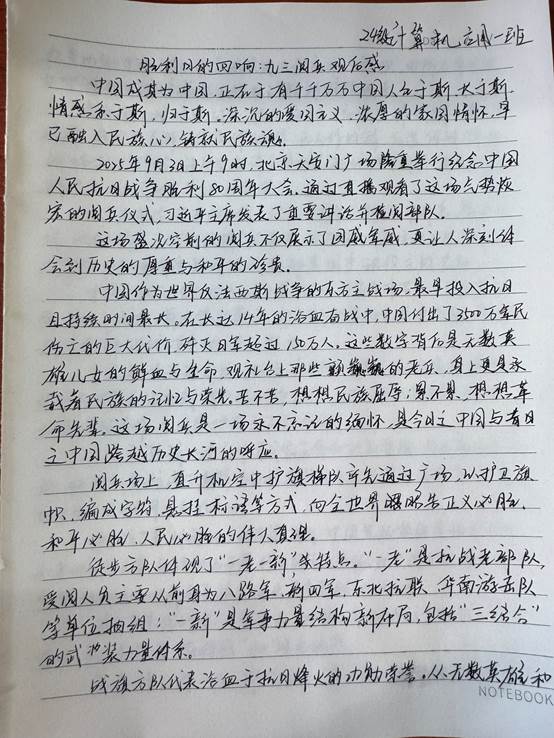 24级计算机应用一班
胜利日的回响:九三阅兵观后感
中国成其为中国,正在于有千千万万中国人生于斯,长于斯,
情感系于斯,归于斯。深沉的爱国主义、浓厚的家国情怀,早
已融入民族心,铸就民族魂。
2025年9月3日上午9时,北京天安门广场隆重举行纪念中国
人民抗日战争胜利80周年大会。通过直播观看了这场气势恢
宏的阅兵仪式,习近平主席发表了重要讲话并检阅部队。
这场盛况空前的阅兵不仅展示了国威军威,更让人深刻体
会到历史的厚重与和平的珍贵。
中国作为世界反法西斯战争的东方主战场,最早投入抗日
且持续时间最长。在长达14年的浴血奋战中,中国付出了3500万军民
伤亡的巨大代价,歼灭日军超过150万人,这些数字背后是无数英
雄儿女的鲜血与生命,观礼台上那些颤巍巍的老兵,身上更是承
载着民族的记忆与荣光。苦不苦,想想民族屈辱;累不累,想想革
命先辈。这场阅兵是一场永不忘记的缅怀,是今日之中国与昔日
之中国跨越历史长河的呼应。
阅兵场上,直升机空中护旗梯队率先通过广场,以护卫旗
帜、编成字符、悬挂标语等方式,向全世界昭告正义必胜、
和平必胜、人民必胜的伟大真理。
徒步方队体现了“一老一新”等特点。“一老”是抗战老部队,
受阅人员主要从前身为八路军、新四军、东北抗联、华南游击队
等单位抽组;“一新”是军事力量结构新布局,包括“三结合”
的武装力量体系。
战旗方队代表浴血于抗日烽火的功勋荣誉。从无数英雄和
NOTEBOOK